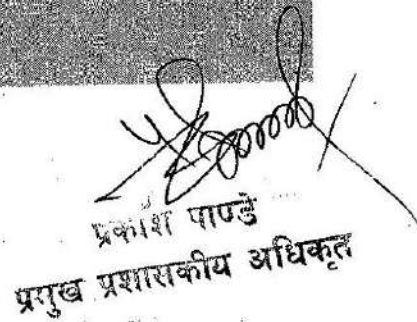 प्रकाश पाण्डे
प्रमुख प्रशासकीय अधिकृत